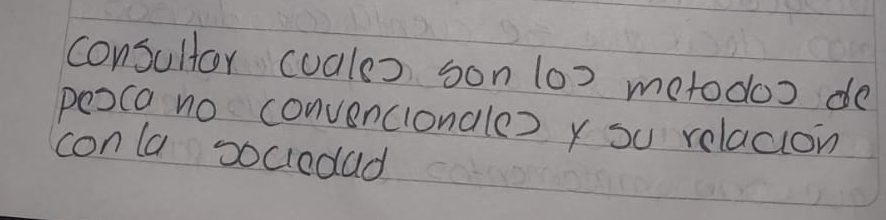 consultar cuales son los metodos de
pesca no convencionales y su relación
con la sociedad